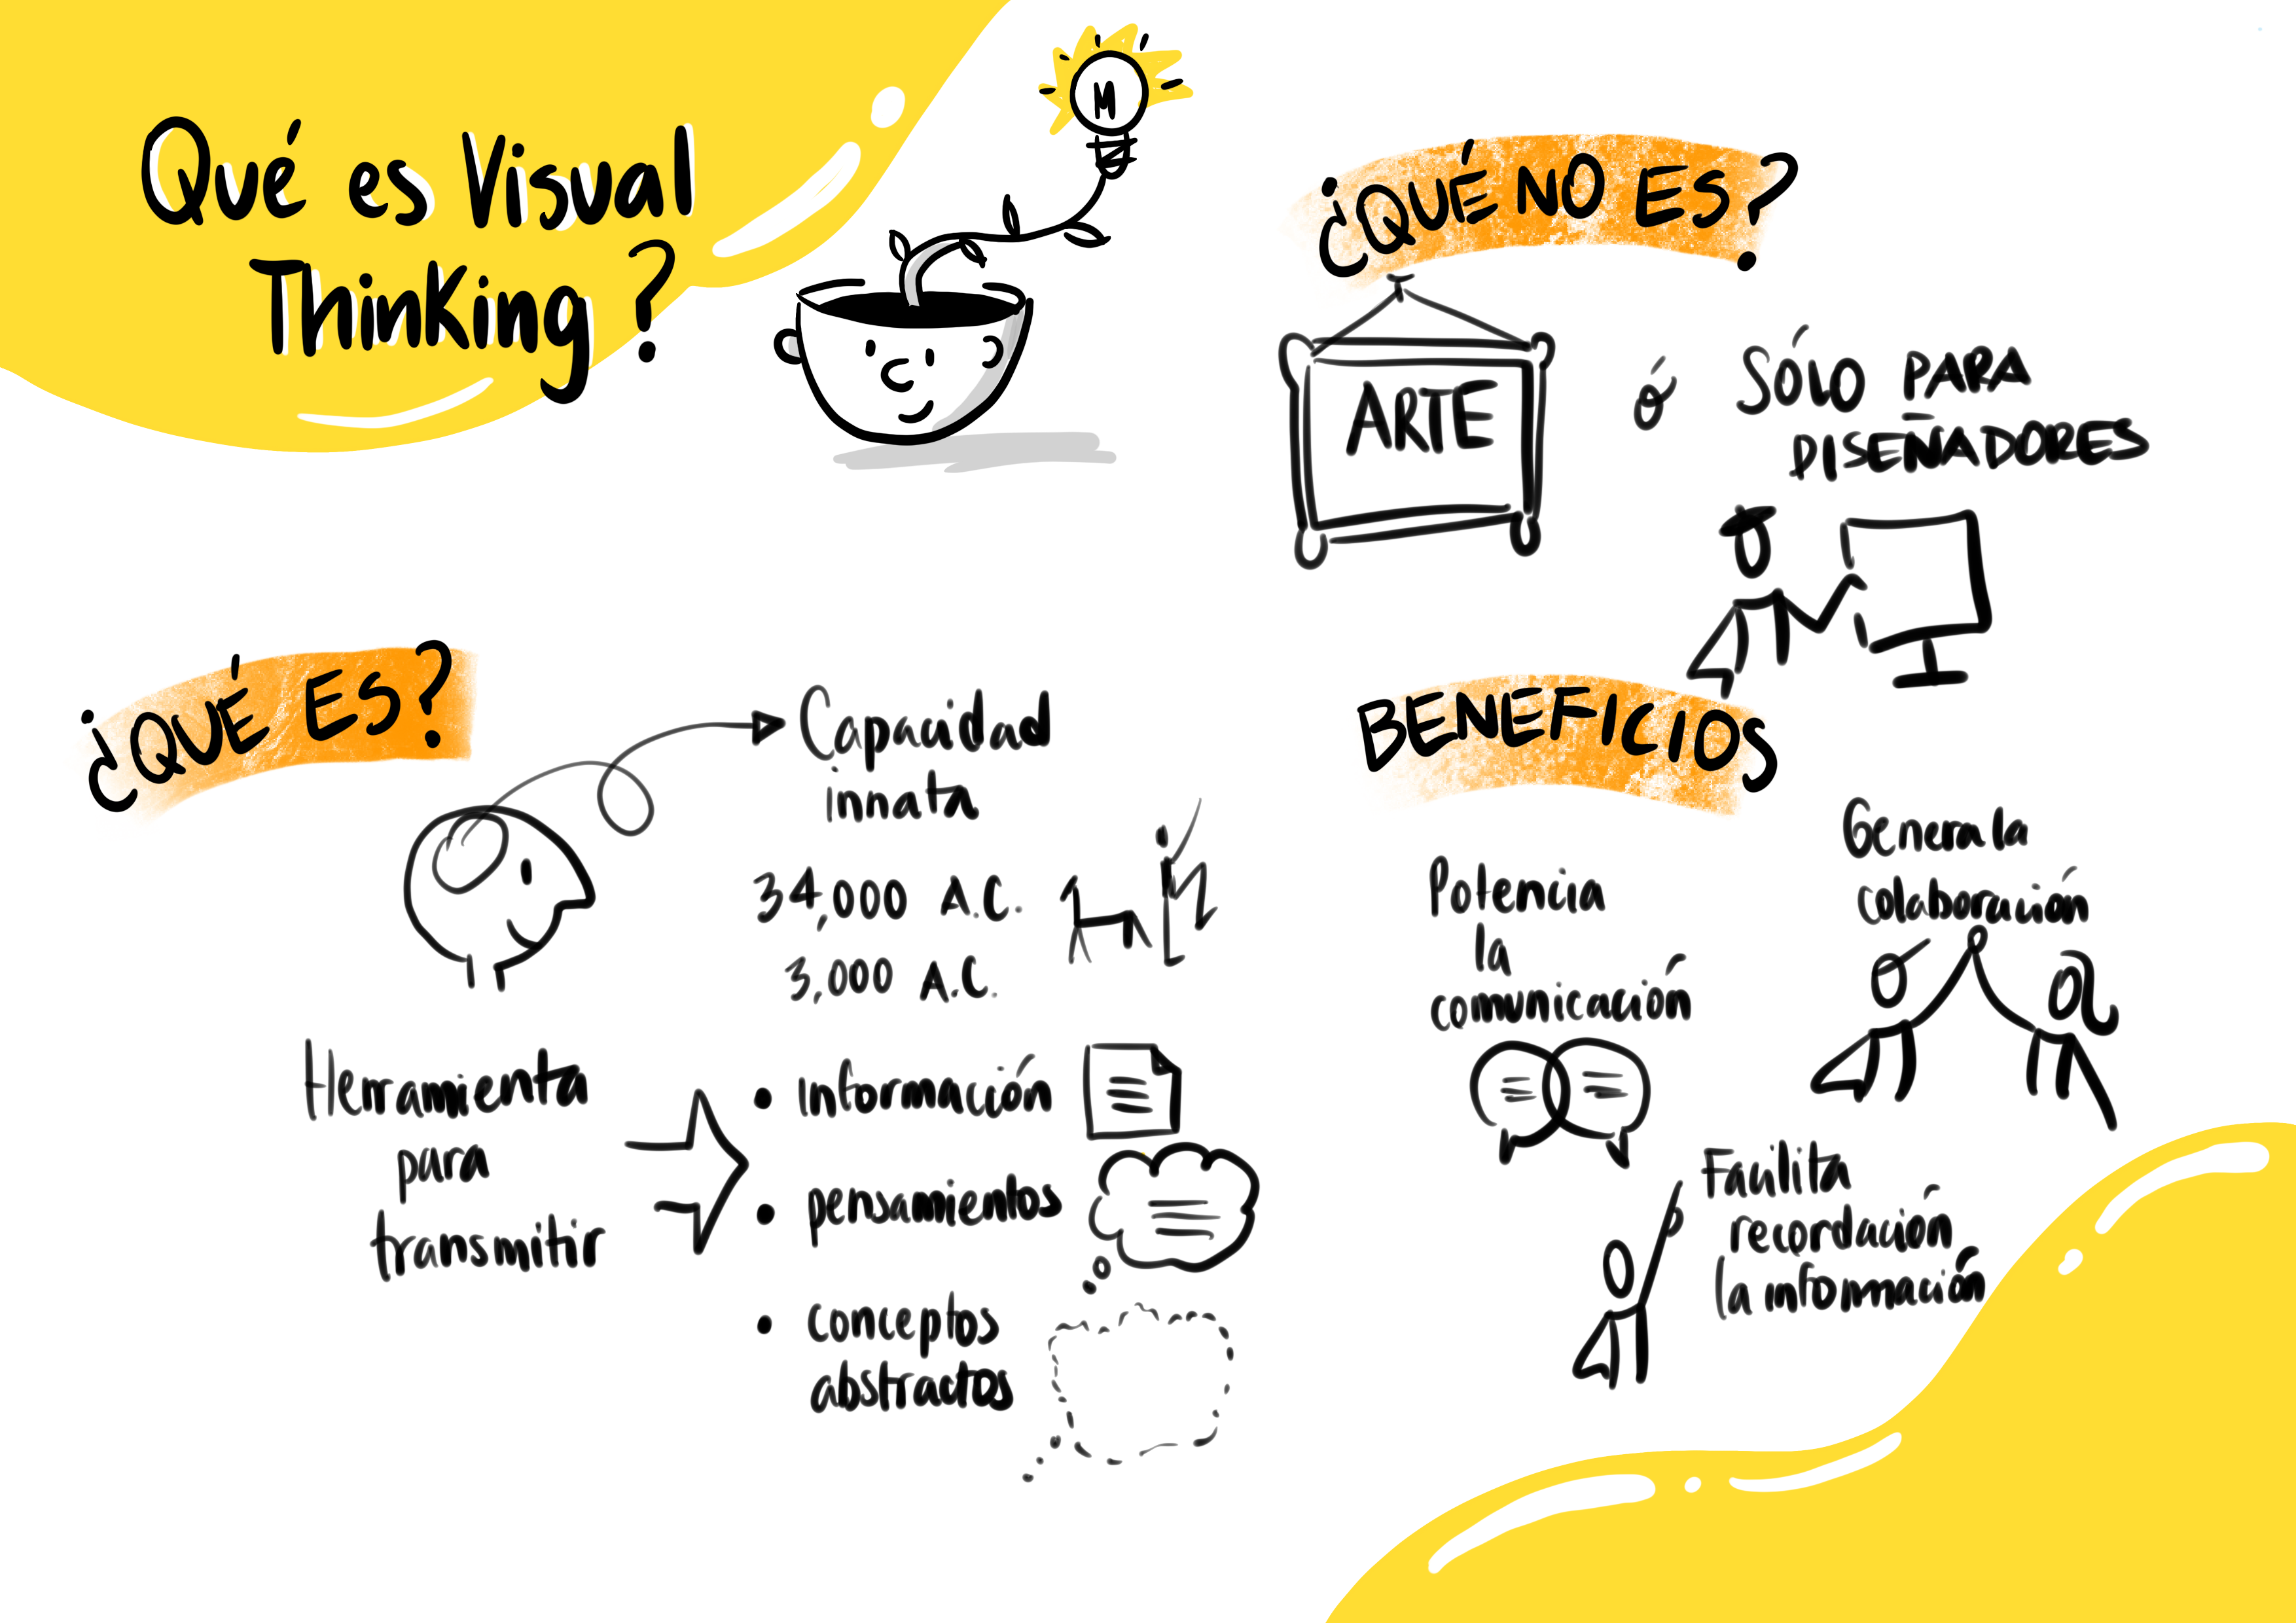 Qué es Visual
Thinking?
M
¿QUÉ ES?
Capacidad
innata
34,000 A.C.
3,000 A.C.
Herramienta
para
transmitir
• información
• pensamientos
• conceptos
abstractos
¿QUÉ NO ES?
ARTE
ó
SÓLO PARA
DISEÑADORES
BENEFICIOS
Potencia
la
comunicación
Genera la
colaboración
Facilita
recordación
la información